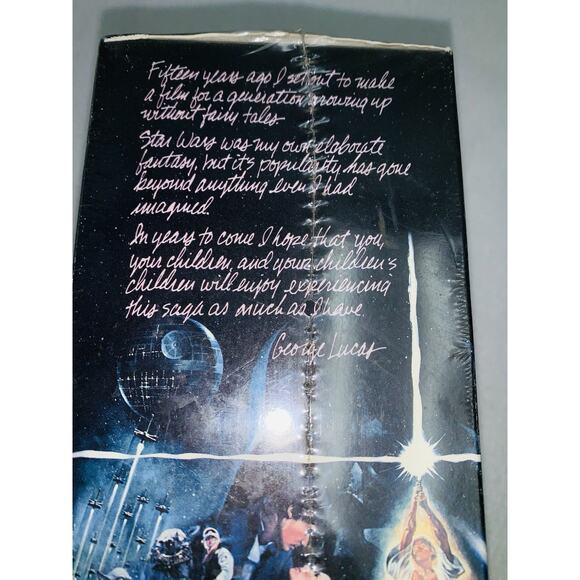 Fifteen years ago I set out to make
a film for a generation growing up
without fairy tales.
Star Wars was my own elaborate
fantasy, but it's popularity has gone
beyond anything even I had
imagined.
In years to come I hope that you,
your children, and your children's
children will enjoy experiencing
this saga as much as I have.
George Lucas